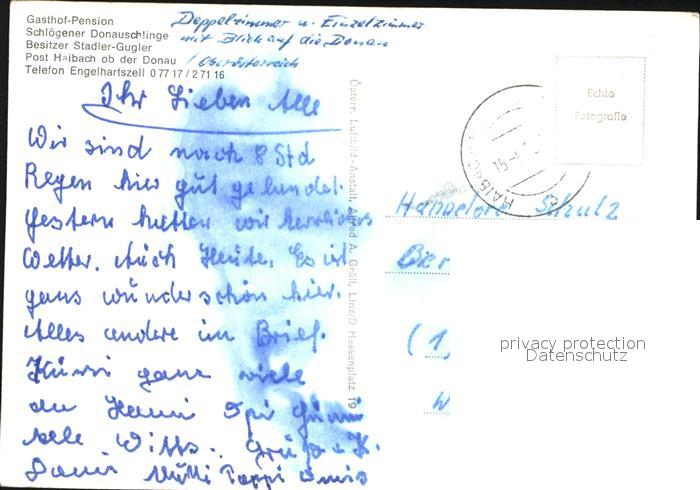 Gasthof-Pension
Schlögener Donauschlinge
Besitzer Stadler-Gugler
Post Haibach ob der Donau
Telefon Engelhartszell 0 77 17 / 271 16
Doppelzimmer u. Einzelzimmer
mit Blick auf die Donau
/ Oberösterreich
Ihr Lieben Alle
Wir sind nach 8 Std
Regen hier gut gelandet.
Gestern hatten wir herrliches
Wetter. Auch Heute. Es ist
ganz wunderschön hier.
Alles andere im Brief.
ganz viele
an
Mutti Pappi
Österr. Luftbild-Anstalt, Alfred A. Grüll, Linz/D Hessenplatz 19
HAIBACH
15
Echte
Fotografie
Hannelore Schulz
Ber
(1
W
privacy protection
Datenschutz